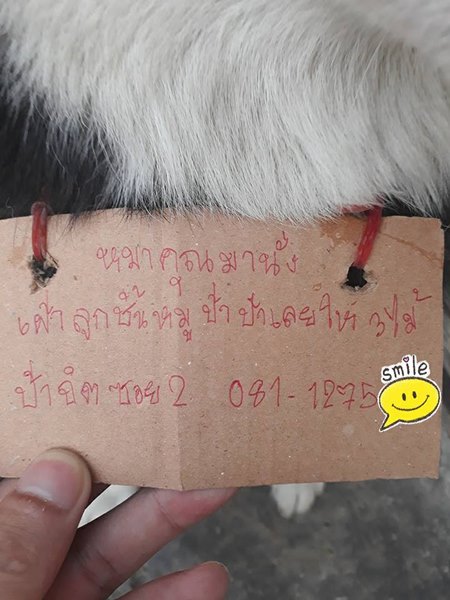 หมาคุณมานั่ง
เฝ้าลูกชิ้นหมู ป้า ป้าเลยให้ 3 ไม้
ป้าจิต ซอย 2 081-1275
smile